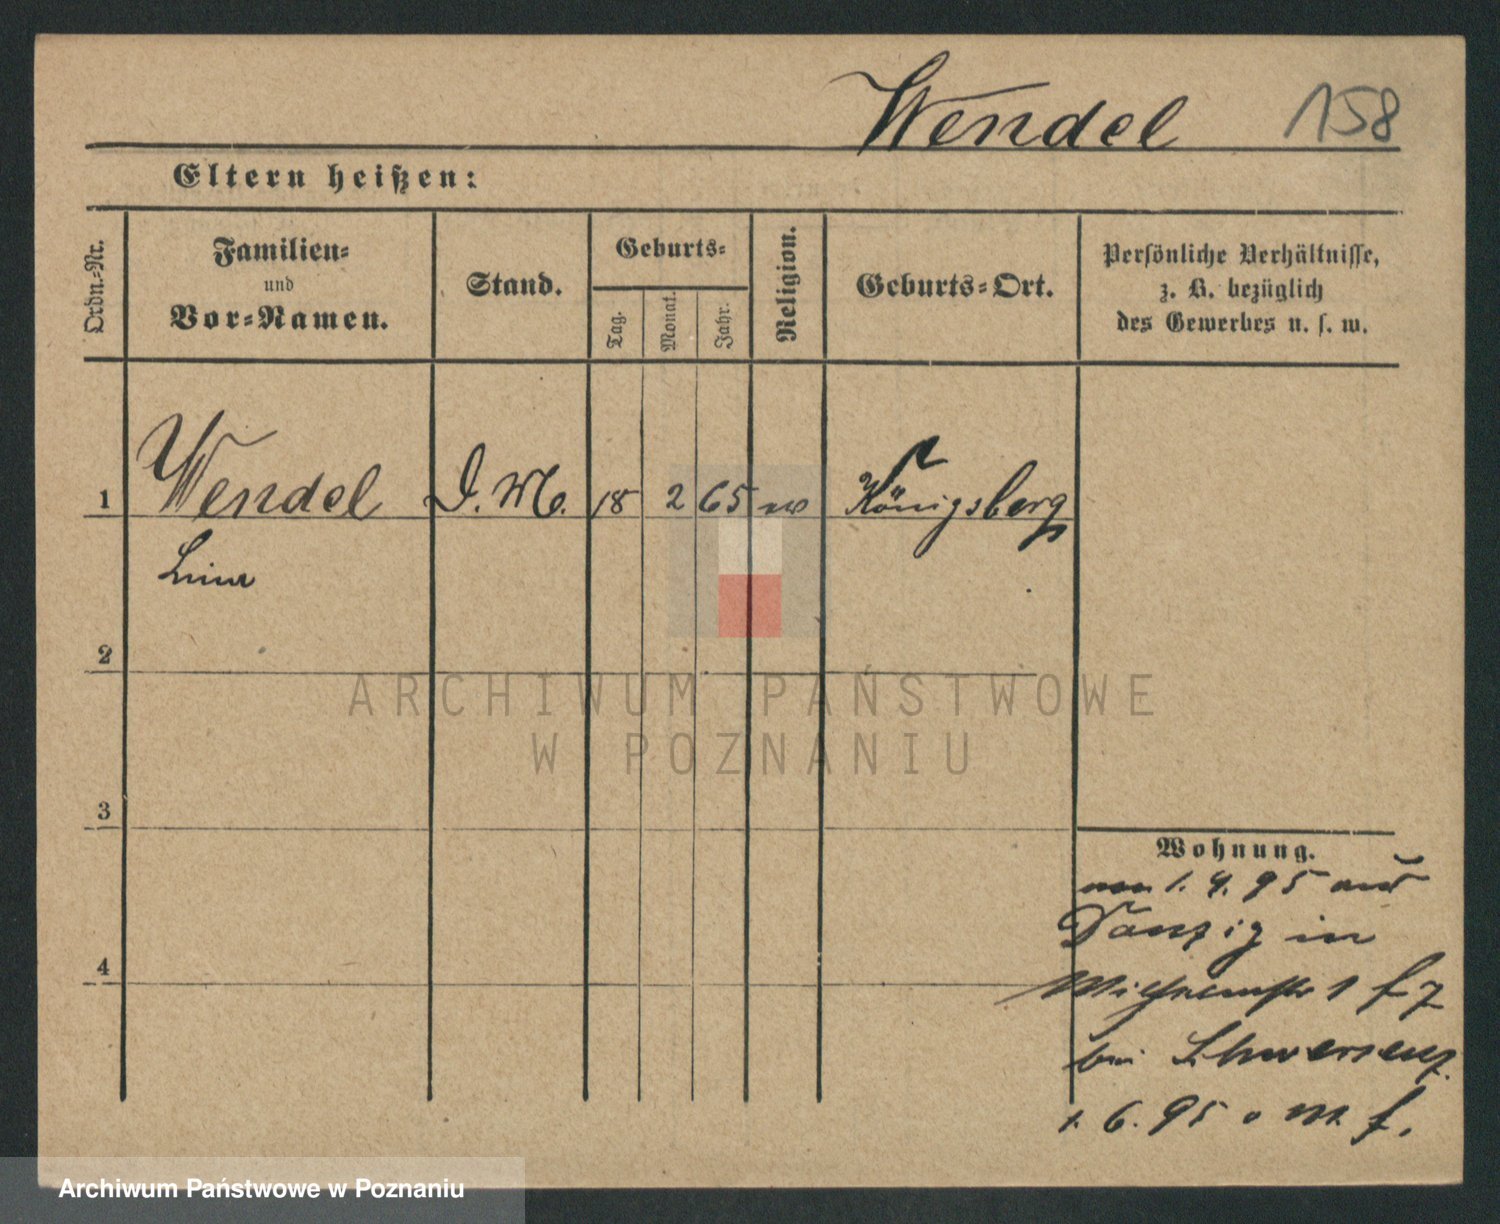 Wendel 158
Eltern heißen:
Ordn.-Nr.
Familien-
und
Vor-Namen.
Stand.
Geburts-
Tag.
Monat.
Jahr.
Religion.
Geburts-Ort.
Persönliche Verhältnisse,
z. B. bezüglich
des Gewerbes u. s. w.
1 Wendel D. M. 18 2 65 Königsberg
2
3
4
Wohnung.
von 1. 4. 95 aus
Danzig in
1
bei Schwersenz
1. 6. 95
ARCHIWUM PAŃSTWOWE
W POZNANIU
Archiwum Państwowe w Poznaniu